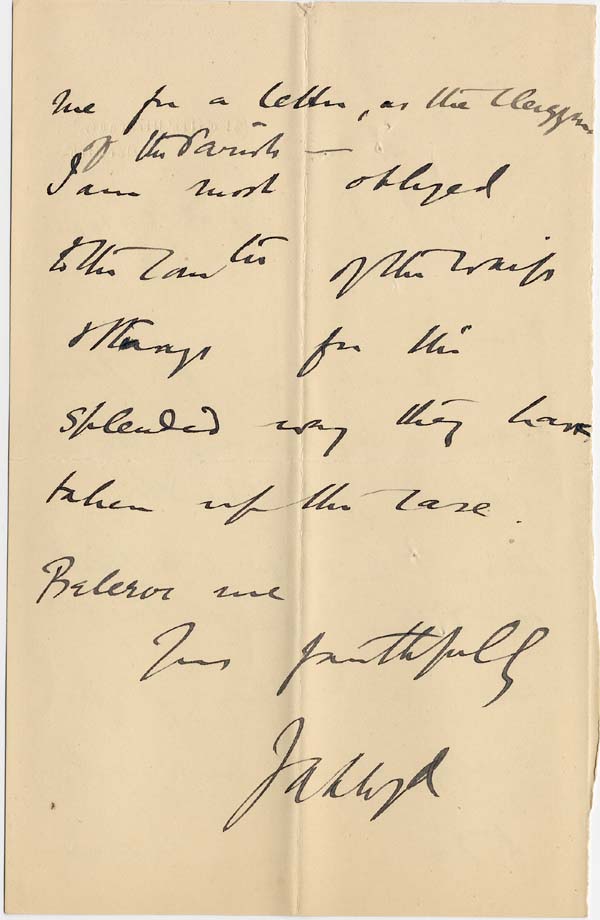 me for a letter, as the Clergyman
of the Parish —
I am most obliged
to the Comtee of the Waifs
& Strays for the
splendid way they have
taken up the case.
Believe me
Yrs faithfully